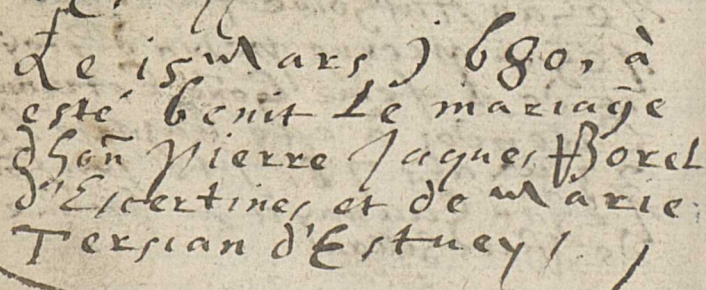 Le 15 Mars 1680, à
esté benit Le mariage
d'hoñ Pierre Jaques Borel
d'Escertines et de Marie
Tersian d'Estuey